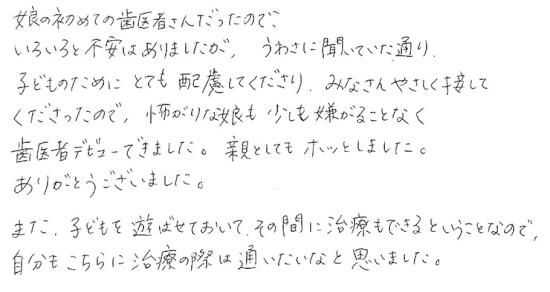 娘の初めての歯医者さんだったので、
いろいろと不安はありましたが、うわさに聞いていた通り、
子どものために とても 配慮してくださり、みなさんやさしく接して
くださったので、怖がりな娘も 少しも嫌がることなく
歯医者デビューできました。親としても ホッとしました。
ありがとうございました。
また、子どもを 遊ばせておいて、その間に治療もできるということなので、
自分もこちらに治療の際は通いたいなと思いました。